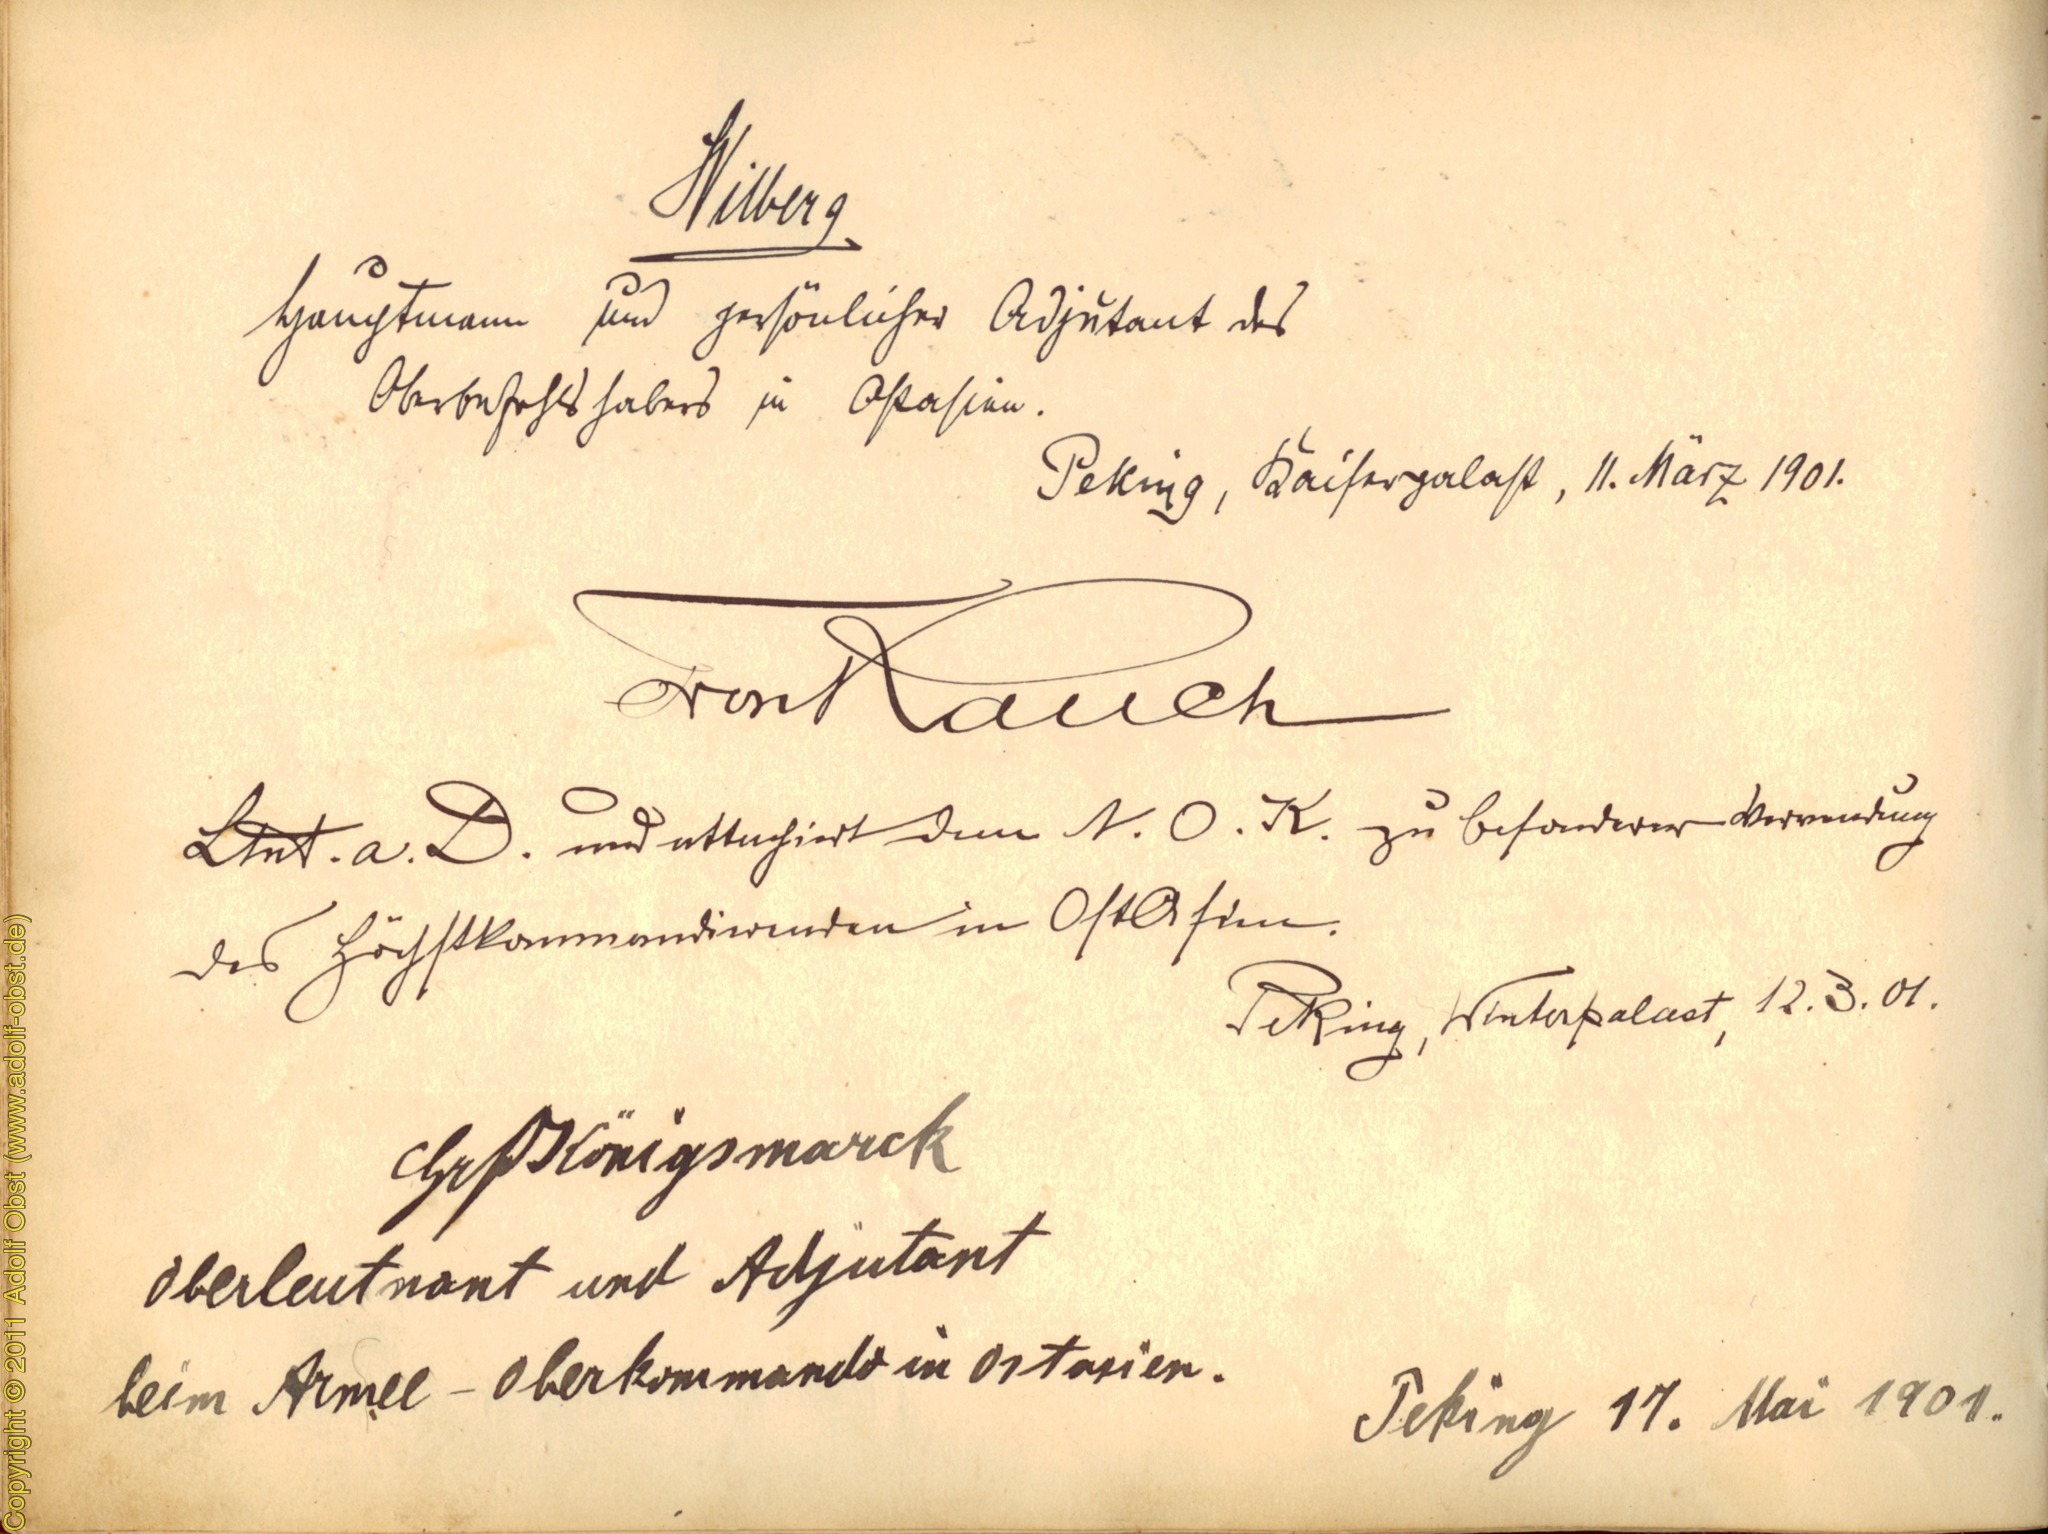 Wilberg
Hauptmann und persönlicher Adjutant des
Oberbefehlshabers in Ostasien.
Peking, Kaiserpalast, 11. März 1901.
von Rauch
Ltnt. a. D. und attachiert dem A. O. K. zu besonderer Verwendung
des Höchstkommandirenden in OstAsien.
Peking, Winterpalast, 12. 3. 01.
Königsmarck
Oberleutnant und Adjutant
beim Armee-Oberkommando in Ostasien.
Peking 17. Mai 1901.
Copyright © 2011 Adolf Obst (www.adolf-obst.de)